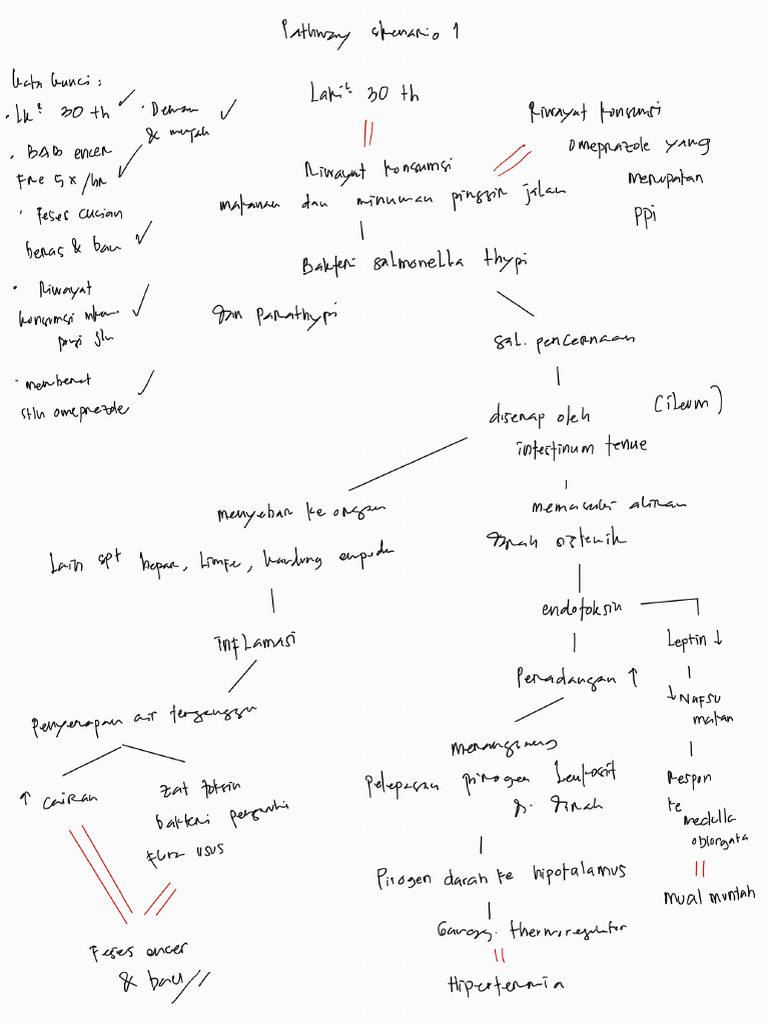 Pathway skenario 1
kata kunci :
• Lk² 30 th
• Demam
& muntah
• BAB encer
Fre 5x/hr
• Feses cucian
beras & bau
• Riwayat
konsumsi mkn.
pinggir jln
• membeli
stlh omeprazole
Laki² 30 th
Riwayat konsumsi
omeprazole yang
merupakan
PPi
Riwayat konsumsi
makanan dan minuman pinggir jalan
Bakteri salmonella thypi
dan Parathypi
sal. pencernaan
diserap oleh (ileum)
intestinum tenue
menyebar ke organ
Lain spt hepar, Limfe, kandung empedu
inflamasi
Penyerapan air terganggu
↑ cairan
zat toksin
bakteri pengaruhi
flora usus
Feses encer
& bau
memasuki aliran
darah sistemik
endotoksin
Peradangan ↑
merangsang
Pelepasan pirogen Leukosit
d. darah
Pirogen darah ke hipotalamus
Gangg. thermoregulator
Hipertermia
Leptin ↓
↓ Nafsu
makan
Respon
ke
medulla
oblongata
mual muntah